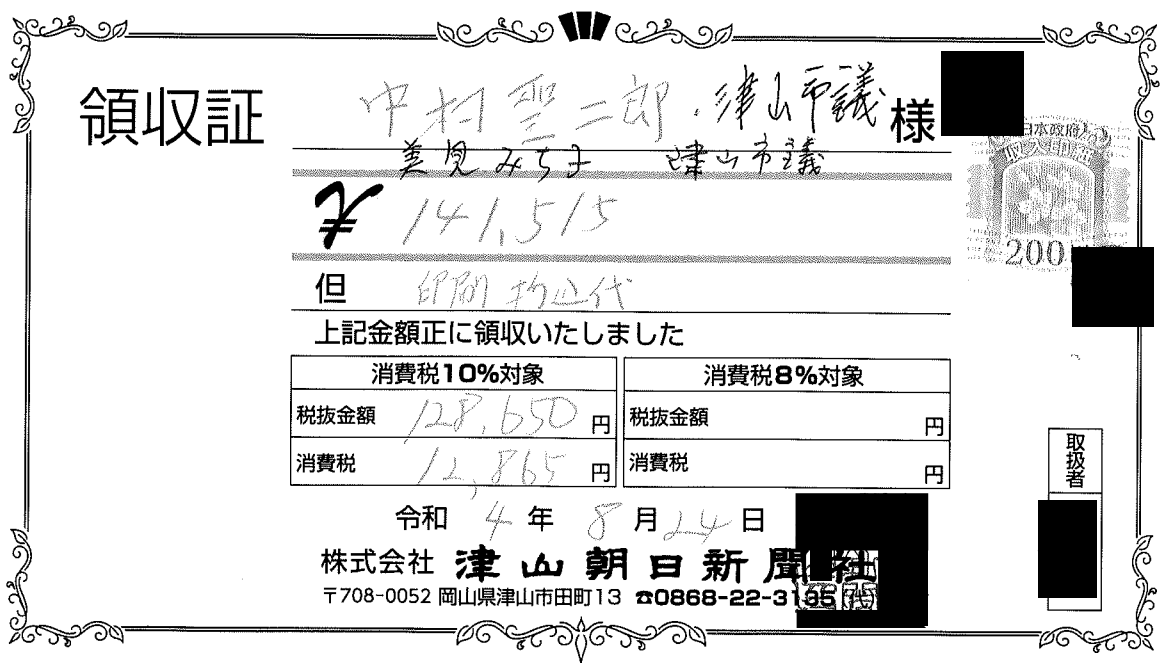 領収証
中村聖二郎・津山市議 様
美見みち子 津山市議
¥141,515
但 印刷折込代
上記金額正に領収いたしました
消費税10%対象 消費税8%対象
税抜金額 128,650円 税抜金額 円
消費税 12,865円 消費税 円
令和4年8月24日
株式会社 津山朝日新聞社
〒708-0052 岡山県津山市田町13 ☎0868-22-3135
日本政府
収入印紙
200
取扱者